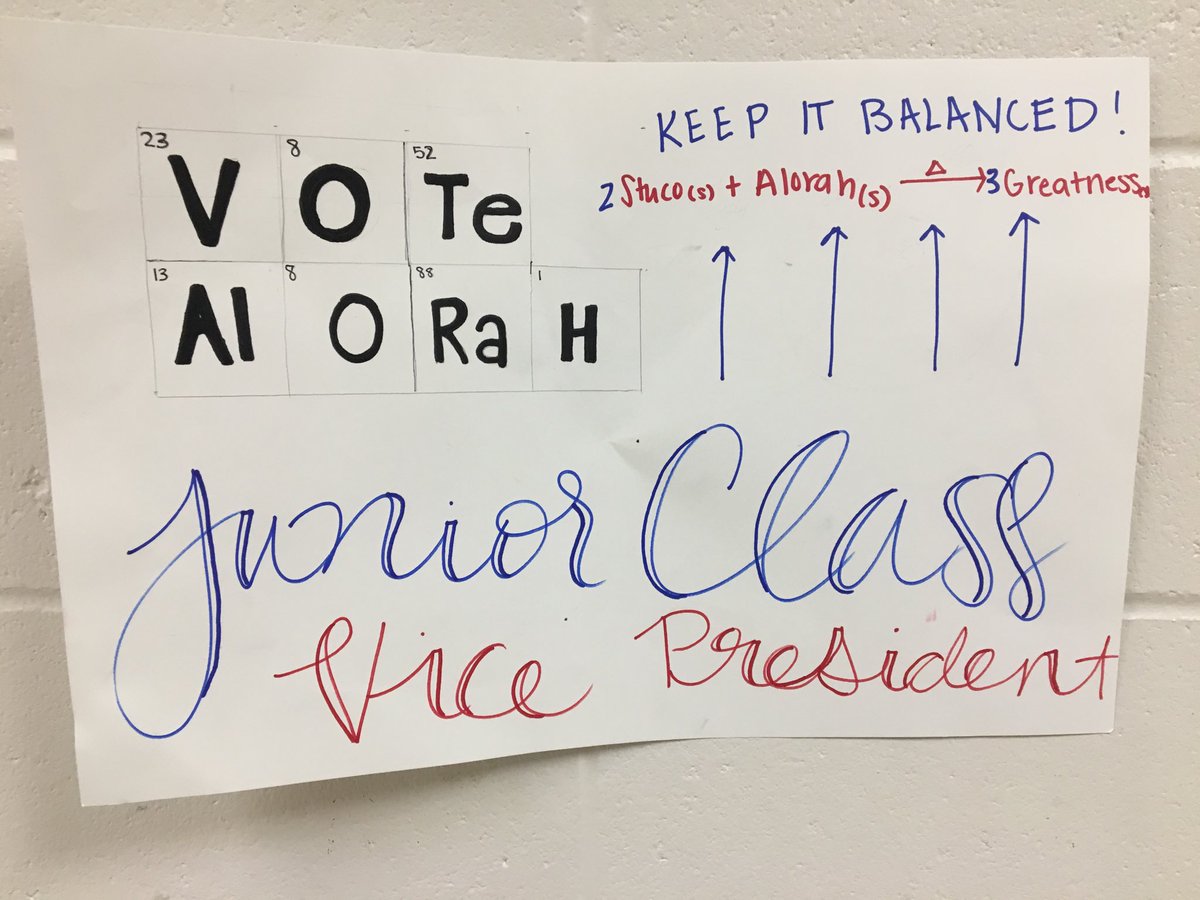 23 8 52
V O Te
13 8 88 1
Al O Ra H
KEEP IT BALANCED!
2 Stuco(s) + Alorah(s) △→ 3 Greatness
Junior Class
Vice President